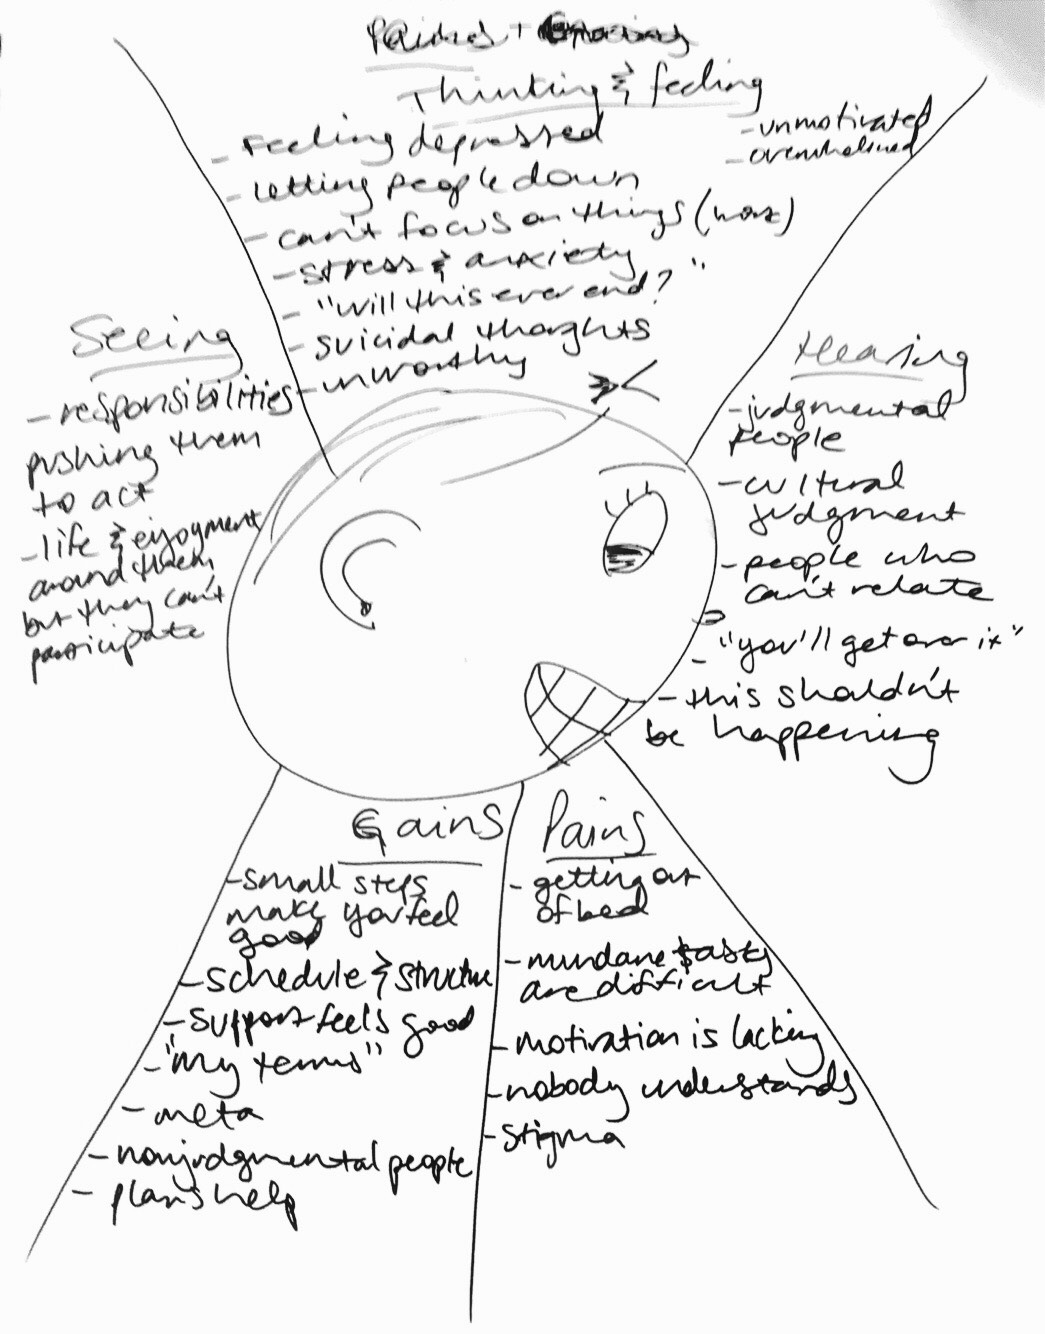 Pains + Gains
Thinking & feeling
- Feeling depressed
- letting people down
- can't focus on things (work)
- stress & anxiety
- "will this ever end?"
- suicidal thoghts
- unworthy
- unmotivated
- overwhelmed
Seeing
- responsibilities
pushing them
to act
- life & enjoyment
around them
but they can't
participate
Hearing
- judgmental
people
- cultural
judgment
- people who
can't relate
- "you'll get over it"
- this shouldn't
be happening
Gains
- small steps
make you feel
good
- schedule & structure
- support feels good
- "my terms"
- meta
- nonjudgmental people
- plans help
Pains
- getting out
of bed
- mundane tasks
are difficult
- motivation is lacking
- nobody understands
- stigma